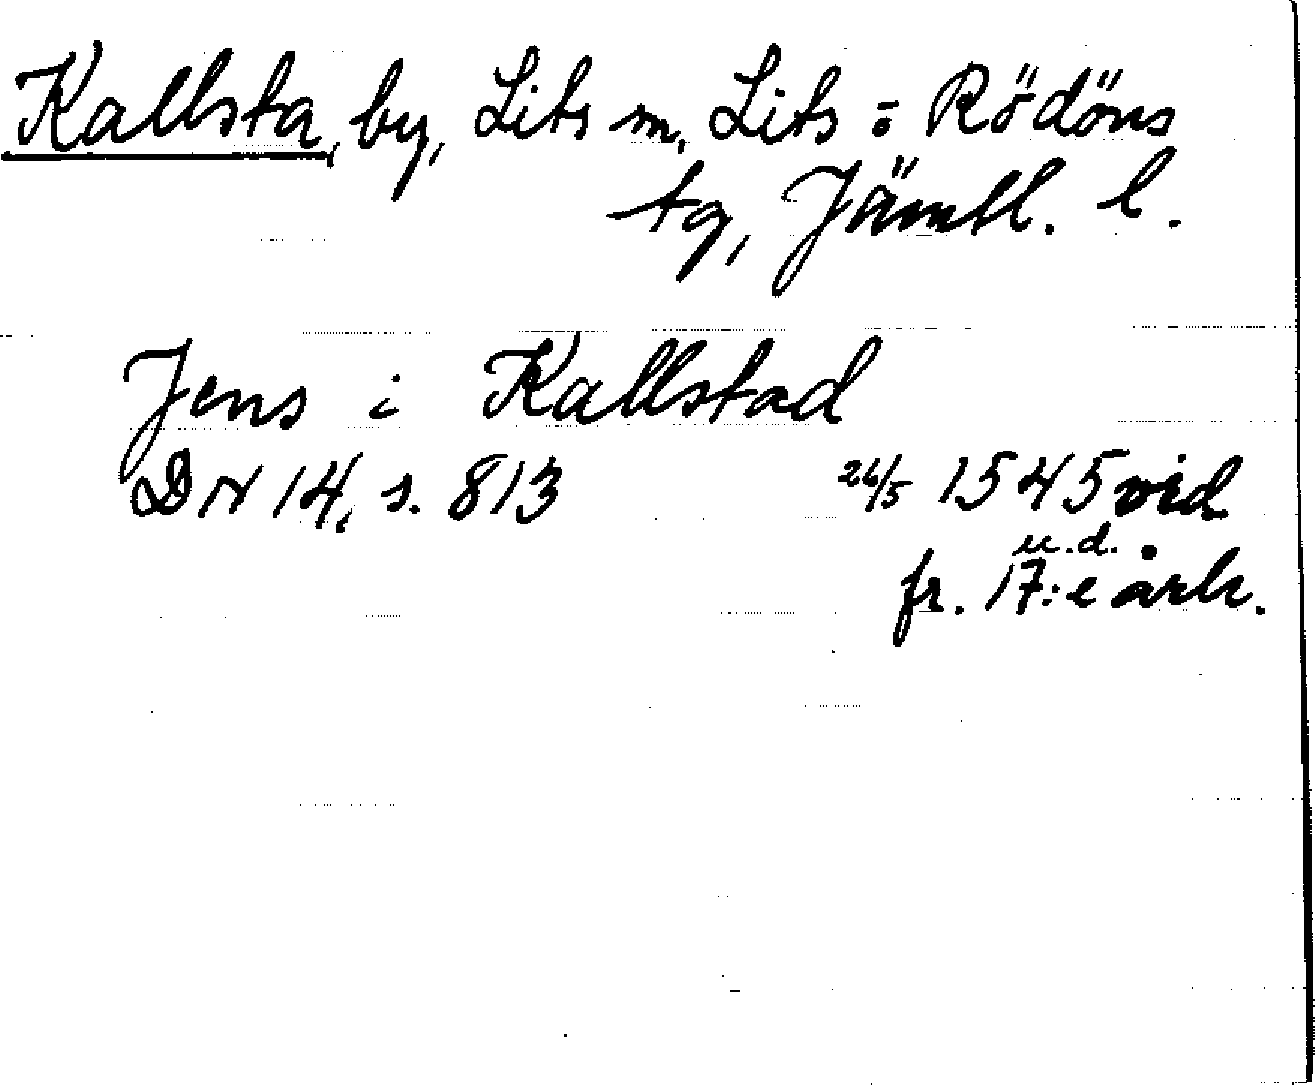 Kallsta, by, Lits sn, Lits o Rödöns
tg, Jämtl. l.
Jens i Kallstad
DN 14, s. 813 26/5 1545 vid
u.d.
fr. 17:e årh.